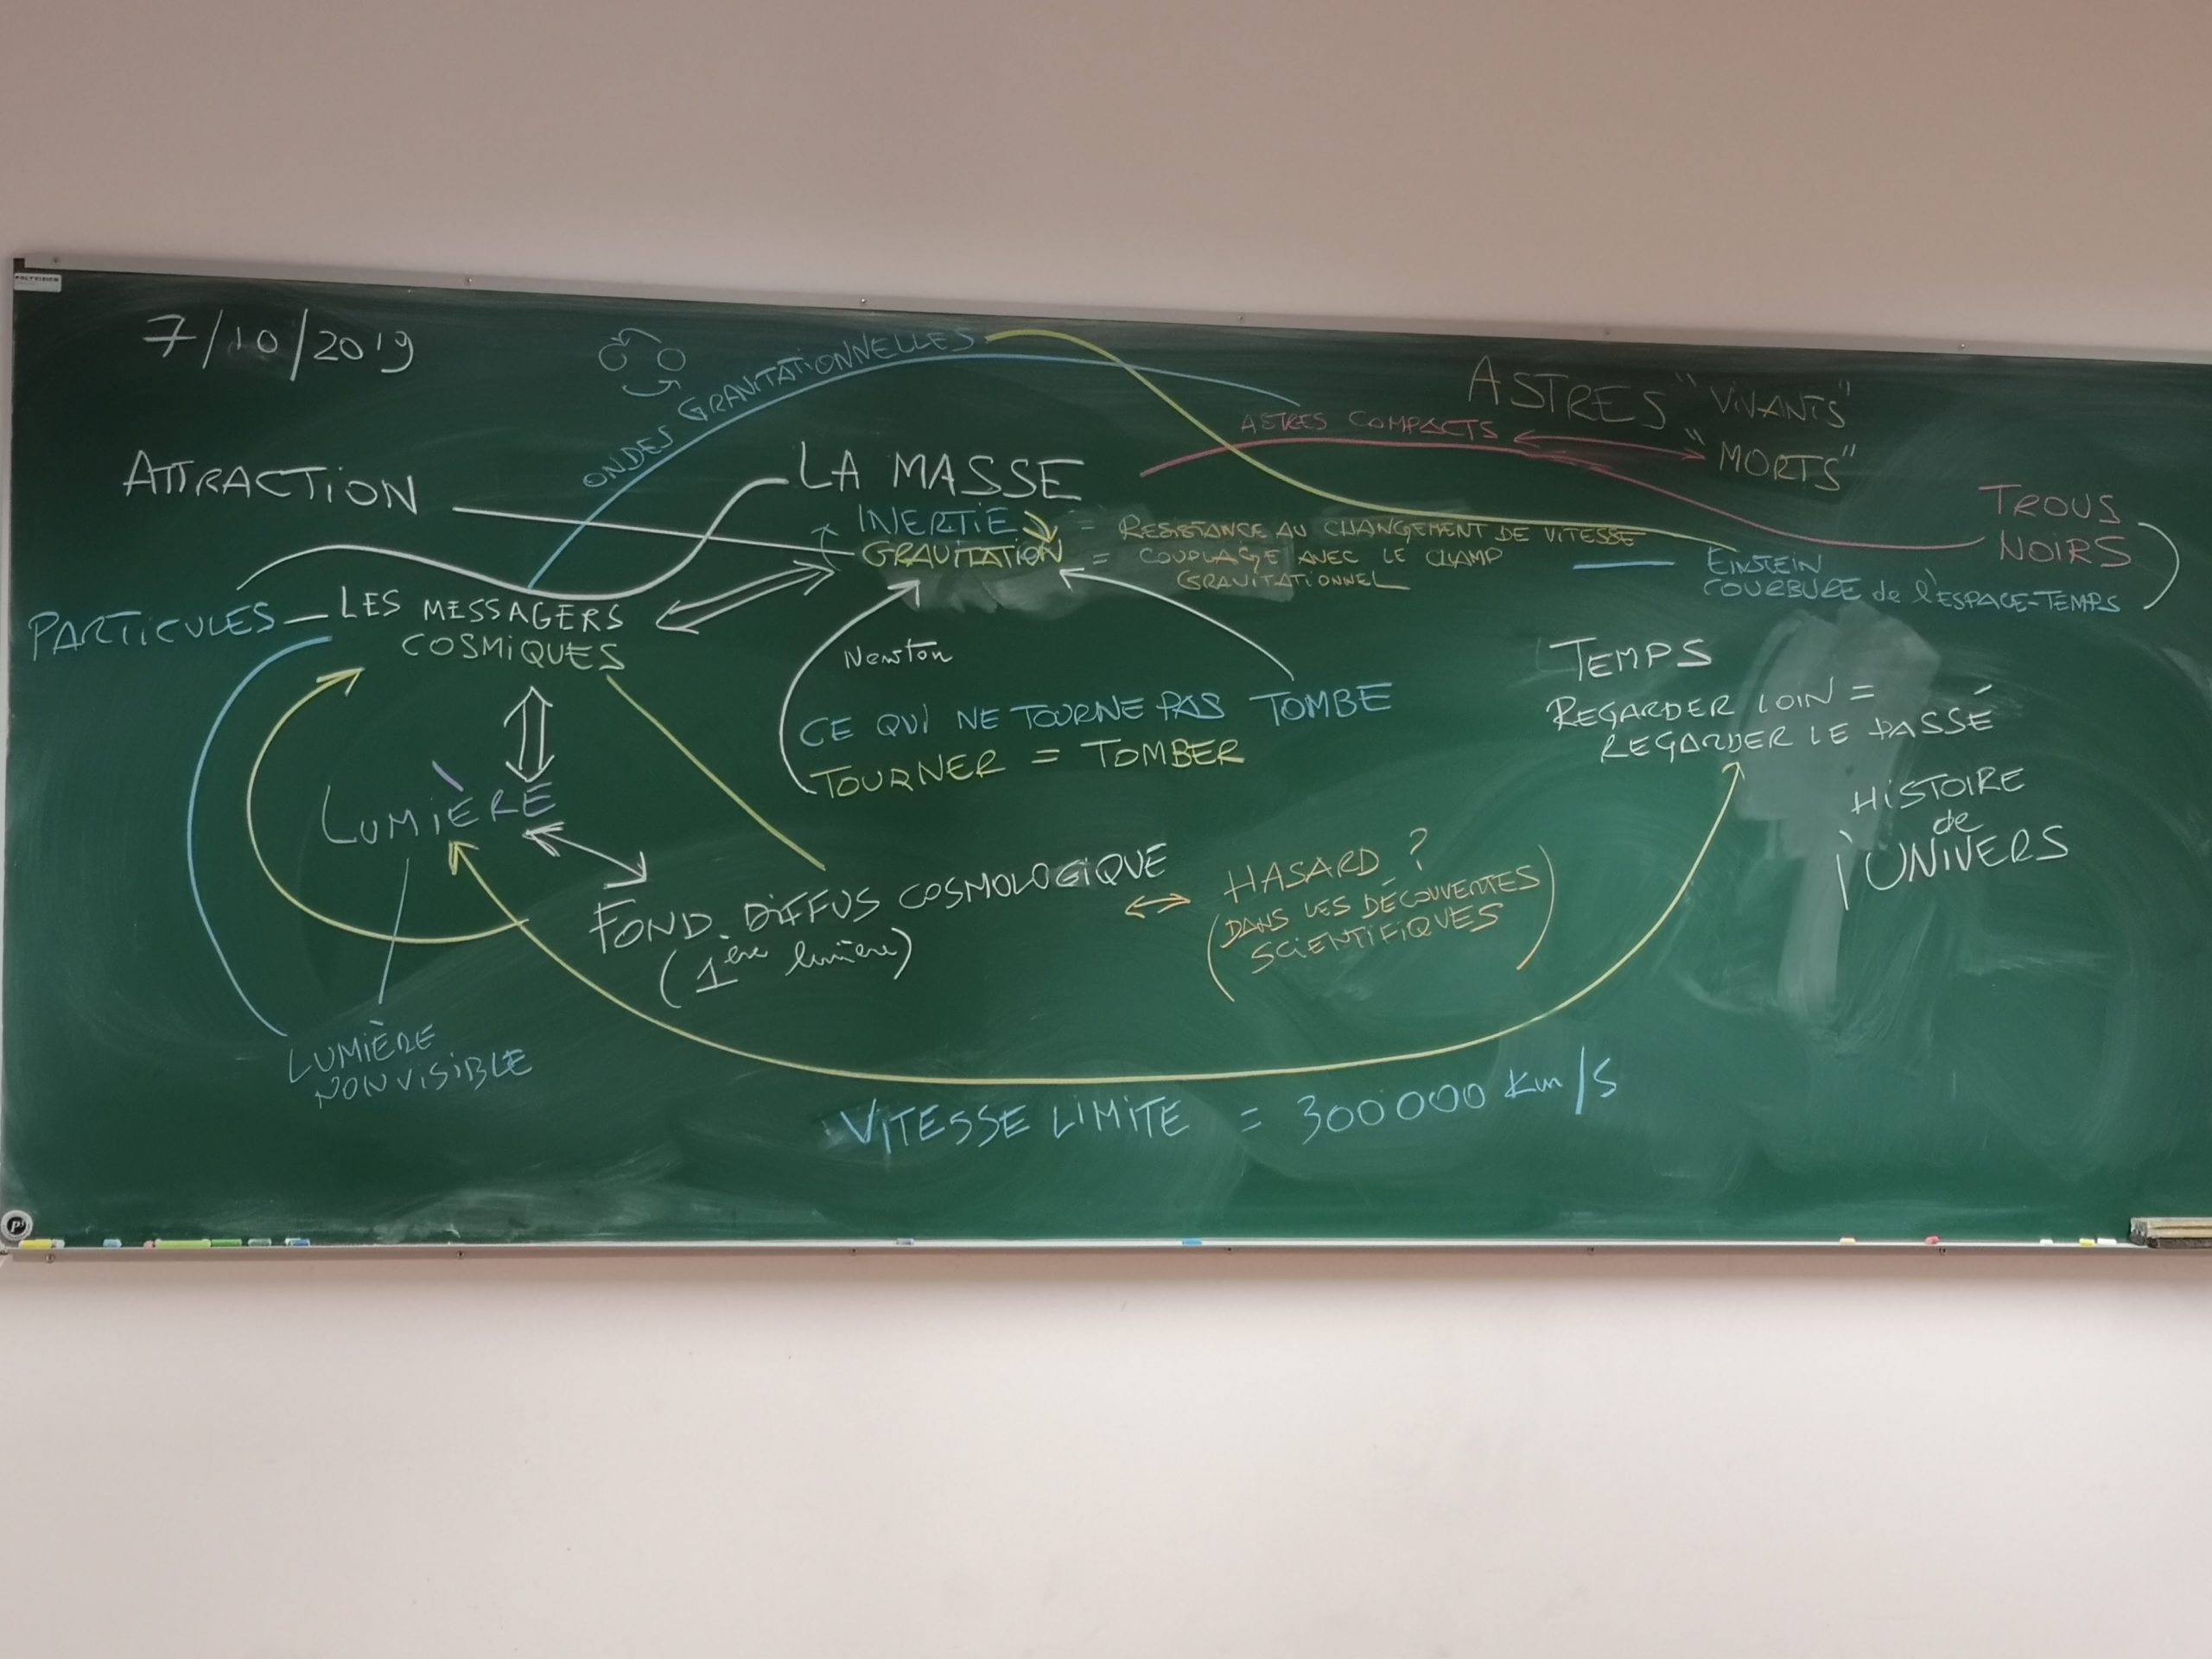 POLYVISION
7/10/2019
ONDES GRAVITATIONNELLES
ASTRES "VIVANTS"
"MORTS"
ASTRES COMPACTS
TROUS
NOIRS
ATTRACTION
LA MASSE
INERTIE = RESISTANCE AU CHANGEMENT DE VITESSE
GRAVITATION = COUPLAGE AVEC LE CHAMP
GRAVITATIONNEL
EINSTEIN
COURBURE de l'ESPACE-TEMPS
PARTICULES
LES MESSAGERS
COSMIQUES
Newton
CE QUI NE TOURNE PAS TOMBE
TOURNER = TOMBER
TEMPS
REGARDER LOIN =
REGARDER LE PASSÉ
HISTOIRE
de
l'UNIVERS
LUMIÈRE
FOND DIFFUS COSMOLOGIQUE
(1ère lumière)
HASARD ?
(DANS LES DÉCOUVERTES
SCIENTIFIQUES)
LUMIÈRE
NON VISIBLE
VITESSE LIMITE = 300000 Km/S